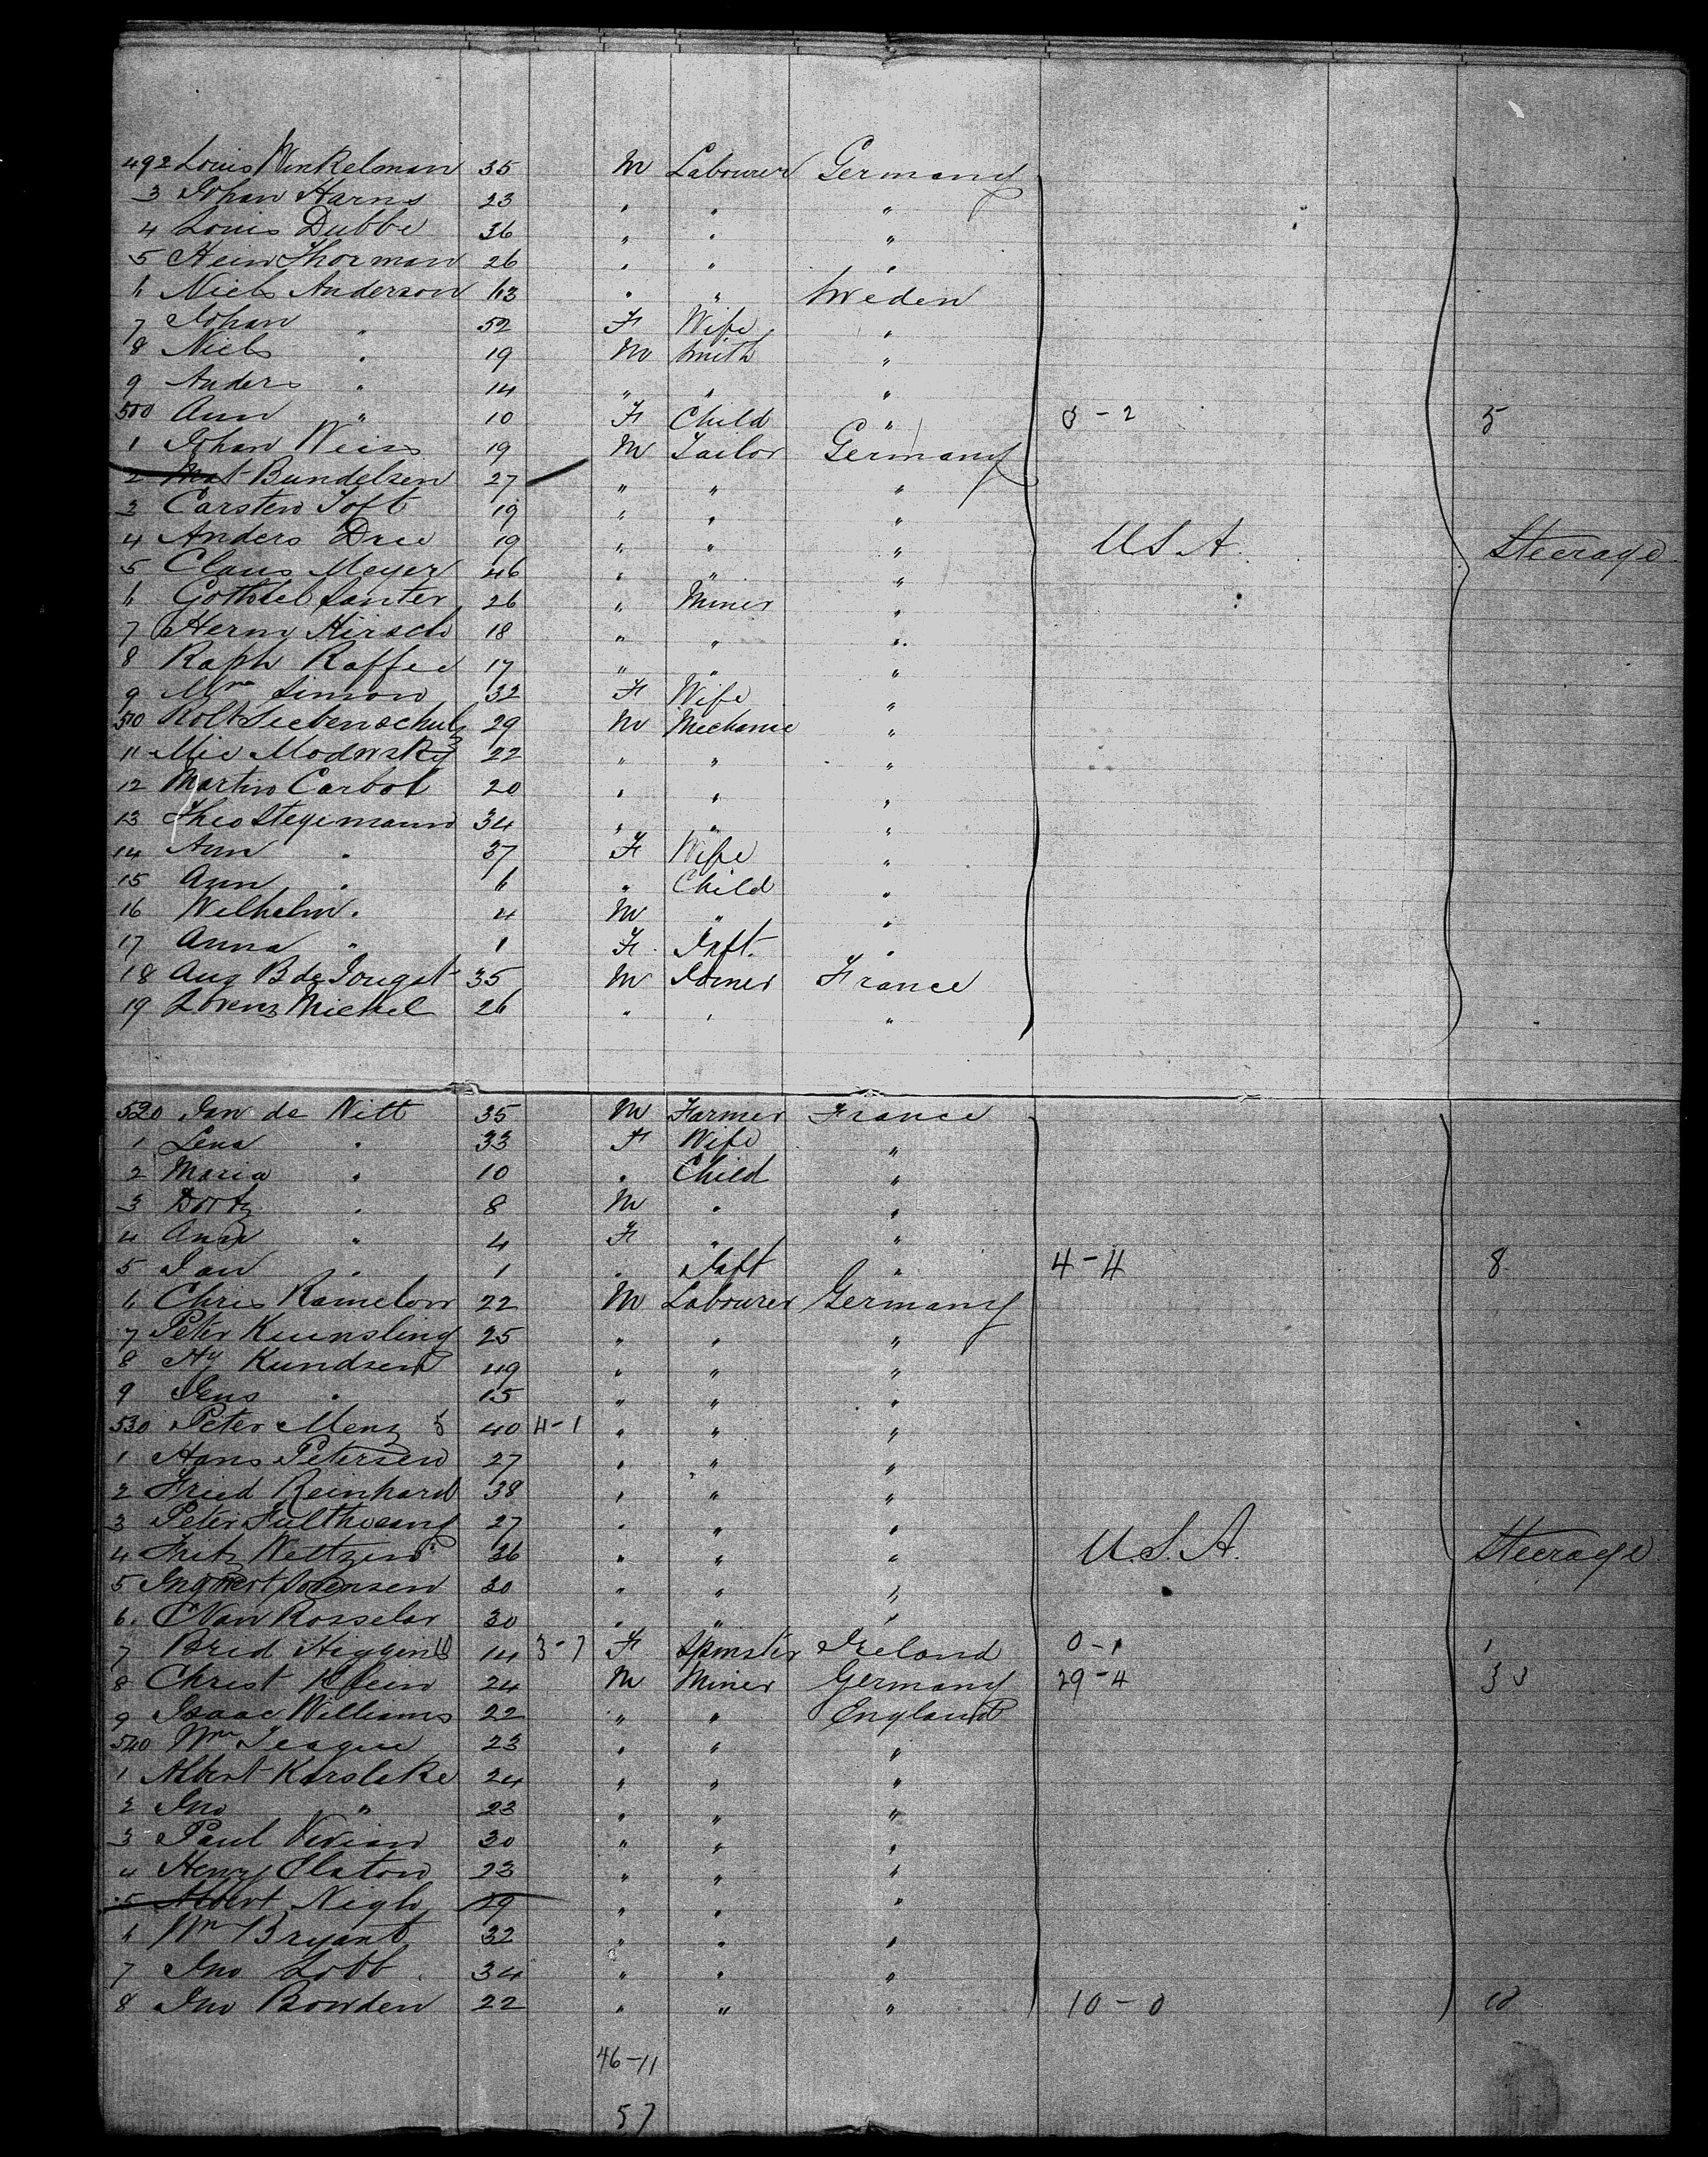 492 Louis Winkelman 35 M Labourer Germany
3 Johan Harns 23 " " "
4 Louis Dubbe 36 " " "
5 Hein Thorman 26 " " "
6 Niels Anderson 63 " " Sweden
7 Johan " 52 F Wife "
8 Niels " 19 M Smith "
9 Anders " 14 " " "
500 Ann " 10 F Child " 3-2 5
1 Johan Weiss 19 M Tailor Germany
2 Mat Bundelsen 27 " " "
3 Carsten Toft 19 " " "
4 Anders Dree 19 " " " U S A. Steerage
5 Claus Meyer 46 " " "
6 Gothlieb Santer 26 " Miner "
7 Herm Hirsch 18 " " "
8 Raph Raffee 17 " " "
9 Mrs Simon 32 F Wife "
510 Robt Siebenschulz 29 M Mechanic "
11 Mic Modwsky 22 " " "
12 Martin Carbot 20 " " "
13 Theo Stegemann 34 " " "
14 Ann " 37 F Wife "
15 Ann " 6 " Child "
16 Wilhelm " 4 M " "
17 Anna " 1 F Inft. "
18 Aug B de 35 M France
19 Lorenz Michel 26 " " "
520 Jan de Witt 35 M Farmer France
1 Lena " 33 F Wife "
2 Maria " 10 " Child "
3 " 8 M " "
4 Ann " 4 F " "
5 Jan " 1 " Inft " 4-4 8
6 Chris Ramelow 22 M Labourer Germany
7 Peter Kuensling 25 " " "
8 Hy Kundsen 49 " " "
9 Jens " 15 " " "
530 Peter Menz 5 40 4-1 " " "
1 Hans Petersen 27 " " "
2 Fried Reinhard 38 " " "
3 Peter 27 " " "
4 Fritz Weltzien 36 " " " U.S.A. Steerage
5 Ingwert Sorensen 30 " " "
6. C Van Rosselar 30 " " "
7 Brid Higgins 10 14 3-7 F Spinster Ireland 0-1 1
8 Christ Klein 24 M Miner Germany 29-4 33
9 Isaac Williams 22 " " England
540 Wm Teague 23 " " "
1 Albert Karslake 24 " " "
2 Jno " 23 " " "
3 Paul Vivian 30 " " "
4 Henry Claton 23 " " "
5 Albert 29 " " "
6 Wm Bryant 32 " " "
7 Jno Lobb 34 " " "
8 Jno Bowden 22 " " " 10-0 10
46-11
57